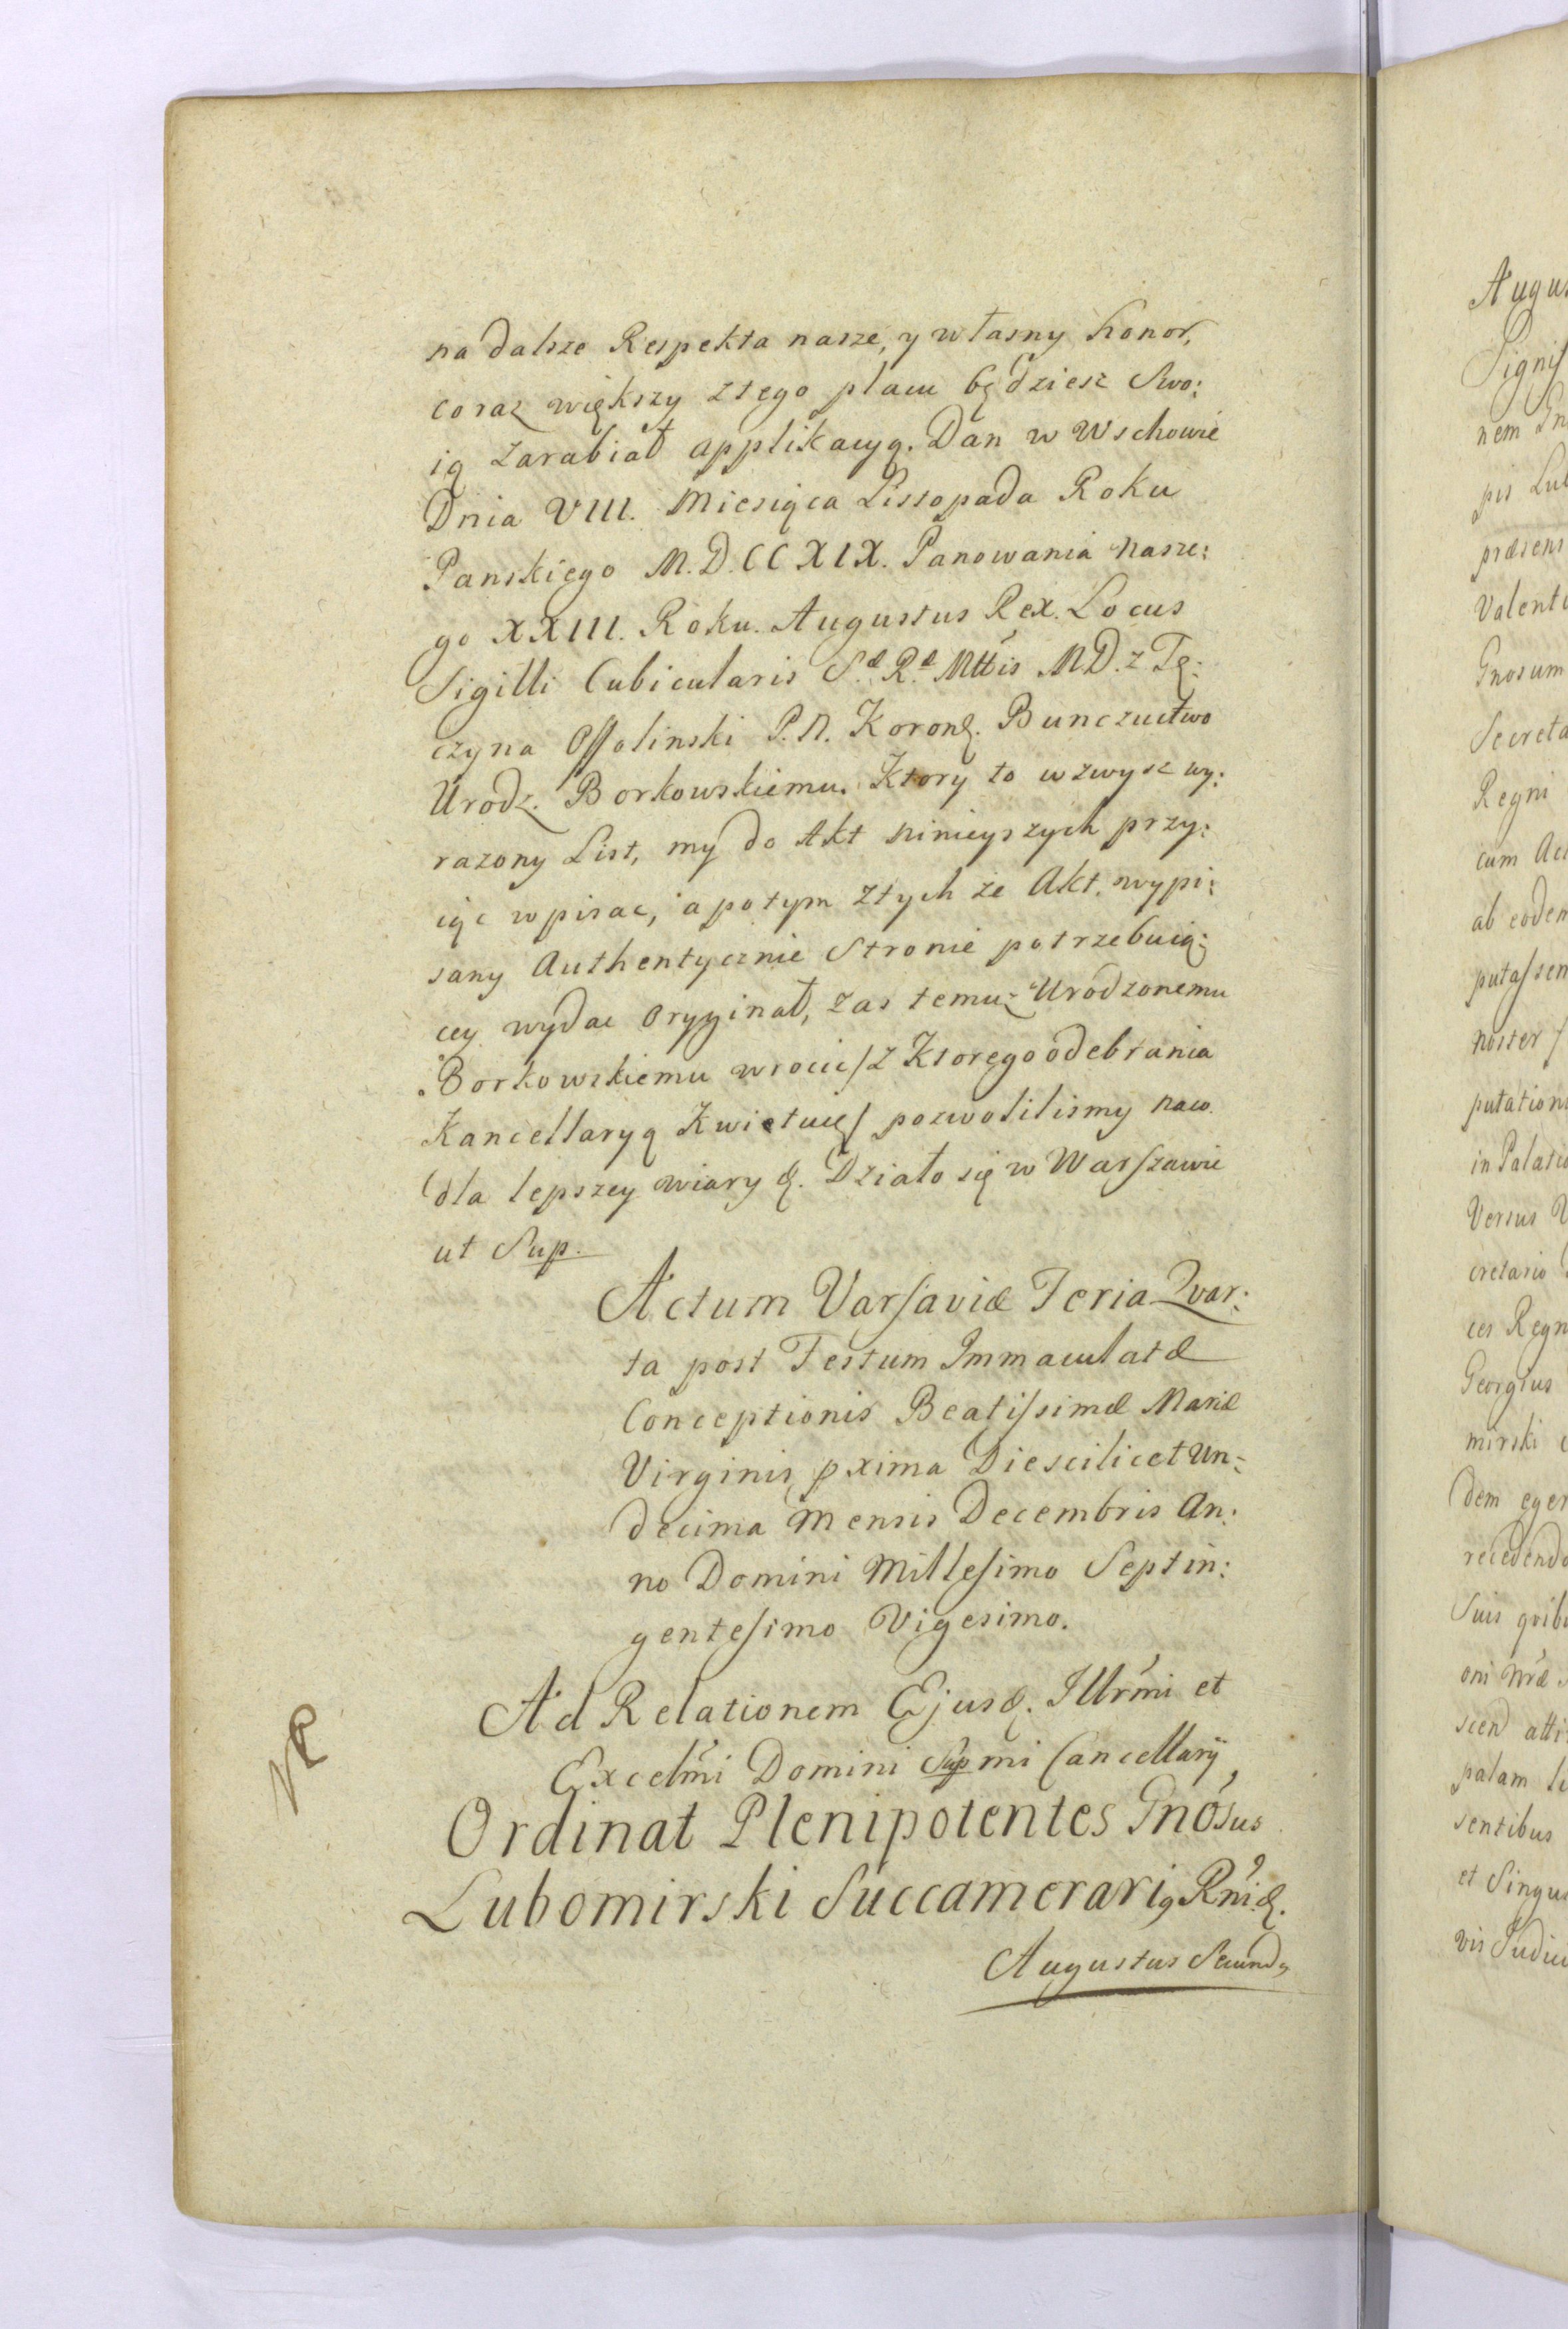 na dalsze Respekta nasze, y własny honor,
coraz większy ztego placu będziesz Swo:
ią zarabiał applikacyą. Dan w Wschowie
Dnia VIII. Miesiąca Listopada Roku
Panskiego M.D.CCXIX. Panowania nasze:
go XXIII. Roku. Augustus Rex. Locus
Sigilli Cubicularis S.æ R.æ Mttis MD. z Tę:
czyna Ossolinski P.N. Koronꝗ. Bunczuctwo
Urodz. Borkowskiemu. Ktory to wzwysz wy:
razony List, my do Akt ninieyszych przy:
iąc wpisac, a potym ztych ze Akt. wypi:
sany Authentycznie Stronie potrzebuią:
cey wydac oryginał, zas temuz Urodzonemu
Borkowskiemu wrocic/z Ktorego odebrania
Kancellaryą Kwietuię/ pozwolilismy naco.
dla lepszey wiary &. Działo się w Warszawie
ut Sup.
Actum Varsaviæ Feria Qvar:
ta post Festum Immaculatæ
Conceptionis Beatissimæ Mariæ
Virginis pxima Die scilicet Un:
decima Mensis Decembris An:
no Domini Millesimo Septin:
gentesimo Vigesimo.
Ad Relationem Ejusd. Illrmi et
Excelmi Domini Supmi Cancellarij
Ordinat Plenipotentes Gnosus
Lubomirski Succamerari9 Rni &.
Augustus Secund9
Augus
Signif
nem Gn
pis Lub
præsens
Valent
Gnosum
Secreta
Regni
cum Act
ab eodem
putassen
noster
putation
in Palatio
Versus
cretario
ces Regn
Georgius
mirski
dem eger
recedendo
Suis qvib
oni nræ
scend atti
palam
sentibus
et Singu
vis Judic